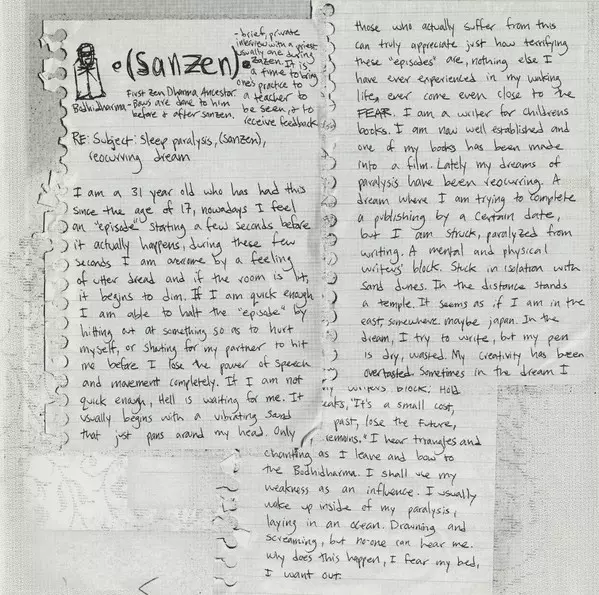 (Sanzen)
- brief, private
interview with a priest
usually one during
zazen. It is
a time to bring
one's practice to
a teacher to
be seen, & to
receive feedback
First Zen Dharma Ancestor.
Bodhidharma - Bows are done to him
before & after sanzen.
RE: Subject: Sleep paralysis, (Sanzen),
reocurring dream
I am a 31 year old who has had this
since the age of 17, nowadays I feel
an "episode" starting a few seconds before
it actually happens, during these few
seconds I am overcome by a feeling
of utter dread and if the room is lit,
it begins to dim. If I am quick enough
I am able to halt the "episode" by
hitting out at something so as to hurt
myself, or shouting for my partner to hit
me before I lose the power of speech
and movement completely. If I am not
quick enough, Hell is waiting for me. It
usually begins with a vibrating sand
that just pans around my head. Only
those who actually suffer from this
can truly appreciate just how terrifying
these "episodes" are, nothing else I
have ever experienced in my waking
life, ever come even close to the
FEAR. I am a writer for childrens
books. I am now well established and
one of my books has been made
into a film. Lately my dreams of
paralysis have been reocurring. A
dream where I am trying to complete
a publishing by a certain date,
but I am stuck, paralyzed from
writing. A mental and physical
writers' block. Stuck in isolation with
sand dunes. In the distance stands
a temple. It seems as if I am in the
east, somewhere. maybe japan. In the
dream, I try to write, but my pen
is dry, wasted. My creativity has been
overtasted. Sometimes in the dream I
writers block. Hold
eaks, "It's a small cost,
past, lose the future,
remains." I hear triangles and
chanting as I leave and bow to
the Bodhidharma. I shall use my
weakness as an influence. I usually
wake up inside of my paralysis,
laying in an ocean. Drowning and
screaming, but no-one can hear me.
why does this happen, I fear my bed,
I want out.